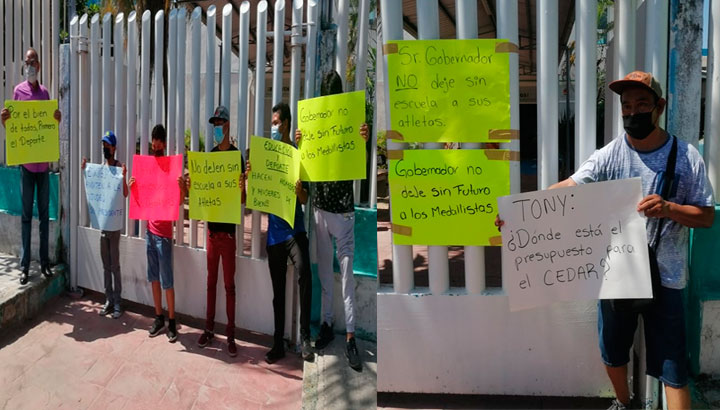 Por el bien
de todos, Primero
el Deporte
No dejen sin
escuela a sus
Atletas
DEPORTE
HACEN
Y MUJERES
DE BIEN!!
Gobernador NO
deje Sin Futuro
a los Medallistas
Sr. Gobernador
NO deje sin
escuela a sus
atletas.
Gobernador NO
deje sin Futuro
a los Medallistas.
TONY:
¿Dónde está el
presupuesto para
el CEDAR?